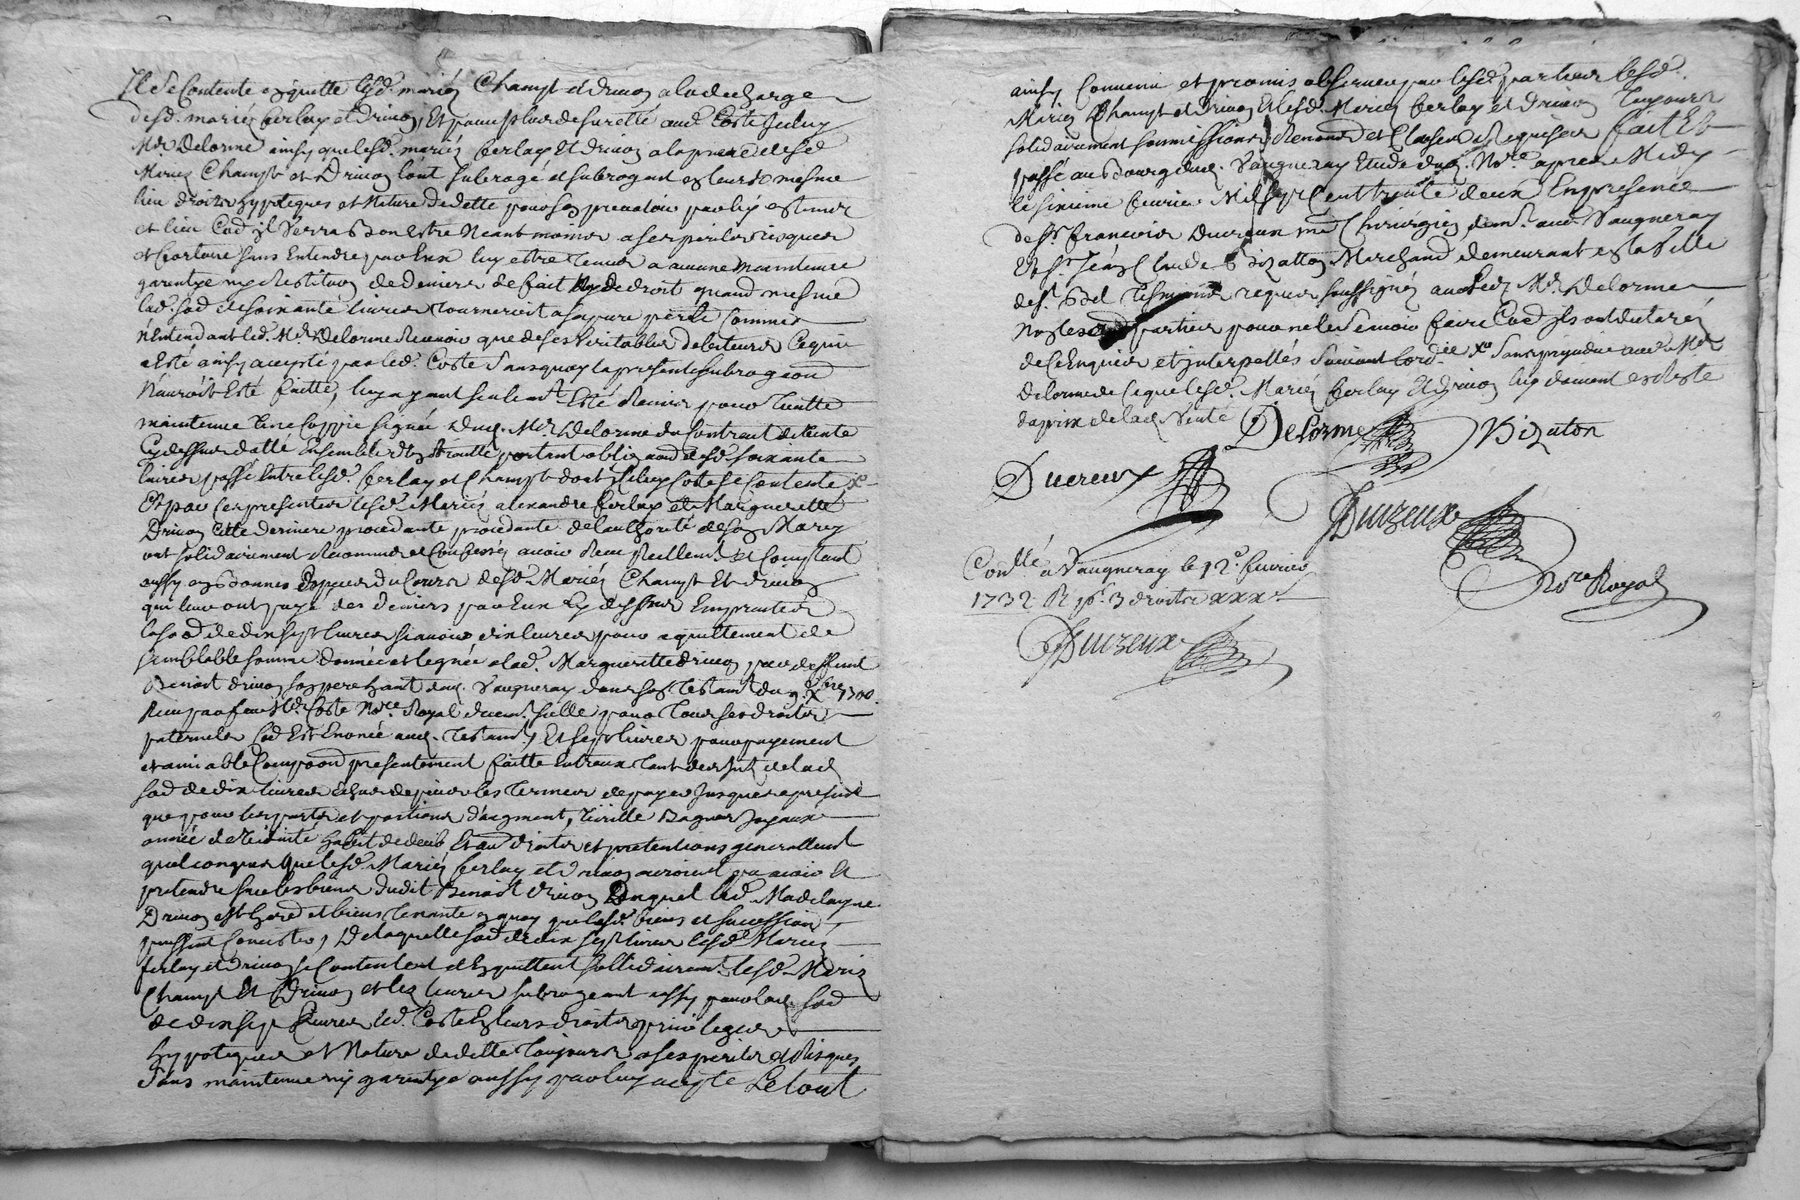 Il se Contente et quitte lesd. mariés Champt et Drivon a la decharge
desd. mariés ferlay et Drivon, Et pour plus de sureté aud. Coste
Mr. Delorme ainsy que lesd. mariés ferlay Et Drivon a la priere desd.
Mariez Champt et Drivon l'ont subrogé et subrogent en leurs mesme
lieu droits hypoteques et Nature de dette pour s'en prevaloir
et lieu Coe. il verra bon estre Neantmoins a ses perils risques
et fortune sans Entendre par Eux luy estre Tenus a aucune maintenue
garentye ny Restitution de deniers de fait ny de droit quand mesme
lad. soe. de soixante livres tourneroit a pure perte Comme
n'entendant led. Mr. Delorme Recevoir que de ses veritables debiteurs Ce qui
a esté ainsy accepté par led. Coste Sans quoy la presente subrogaon
N'auroit Esté faitte, luy ayant seulemt. Esté Remis pour Toutte
maintenue une Coppie signée dud. Mr. Delorme du Contract de vente
Cy dessus datté Ensemble
livres passé Entre lesd. ferlay et Champt dont led. Coste se Contente
Et par Ces presentes lesd. Mariés alexandre ferlay et Marguerite
Drivon Cette derniere procedante procedante de l'authorité de son Mary
ont solidairement Reconnu et Confessé avoir Receu Reellemt. et Comptant
aussy en bonnes Especes du Cours desd. Mariés Champt Et Drivon
qui leur ont payé des deniers par Eux Cy dessus Empruntés
la soe. de dix sept livres sçavoir dix livres pour aquittement de
semblable somme donnée et leguée a lad. Marguerite Drivon par deffunt
Benoist Drivon son pere hant. dud. Vaugneray dans son Testamt. du 9. Xbre 1700
Receu par feu Me. Coste Nore. Royal pour Tous ses droits
paternels Coe. Est Enoncé aud. Testamt., Et sept livres pour payement
et amiable Compoon. presentement faitte Entreux Tant des jnts. de lad.
soe. de dix livres Echus depuis les Termes de payer Jusques a present
que pour les parts et portions d'augment, Bagues Joyaux
année de Viduité habit de deuil Et au. droits et pretentions generallemt.
quelconques que lesd. Mariés ferlay et Drivon auroient pu avoir Et
pretendre sur les biens dudit Benoist Drivon Duquel lad. Madelayne
Drivon est hered. et biens Tenante en quoy que lesd. biens et succession
puissent Consister, De laquelle soe. de dix sept livres lesd. Mariés
ferlay et Drivon se Contentent et En quittent sollidairemt. lesd. Mariés
Champt Et Drivon et les leurs subrogeant aussy pour lad. soe.
de dix sept livres led. Coste En leurs droits privileges
hypoteques et Nature de dette Toujours a ses perils et Risques
Sans maintenue ny garentye aussy par luy accepté Le tout
ainsy Convenu et promis observer par lesd. parties lesd.
Mariés Champt et Drivon Et lesd. Mariés ferlay et Drivon Toujours
solidairement soumissions, Renonons. et Clauses Requises fait Et
passé au Bourg dud. Vaugneray Etude dud. Nore. apres Midy
le sixieme fevrier Mil sept Cent trente deux En presence
de Sr. francois Ducreux me. Chirurgien demt. aud. Vaugneray
Et Sr. Jean Claude Bizatton Marchand demeurant en la Ville
de St. Bel Tesmoins requis soussignés avec led. Mr. Delorme
Non lesd. parties pour ne le Scavoir faire Coe. ils ont declaré
de Ce Enquis et interpellés suivant lordce. Xo Sans prejudice aud. Mr
Delorme de Ce que lesd. Mariés ferlay Et Drivon luy doivent en Reste
du prix de lad. Vente
Delorme Bizaton
Ducreux
Duizeux
Nore Royal
Conllé a Vaugneray le 12e. fevrier
1732 R 16s. 3 droits xxx s
Duizeux